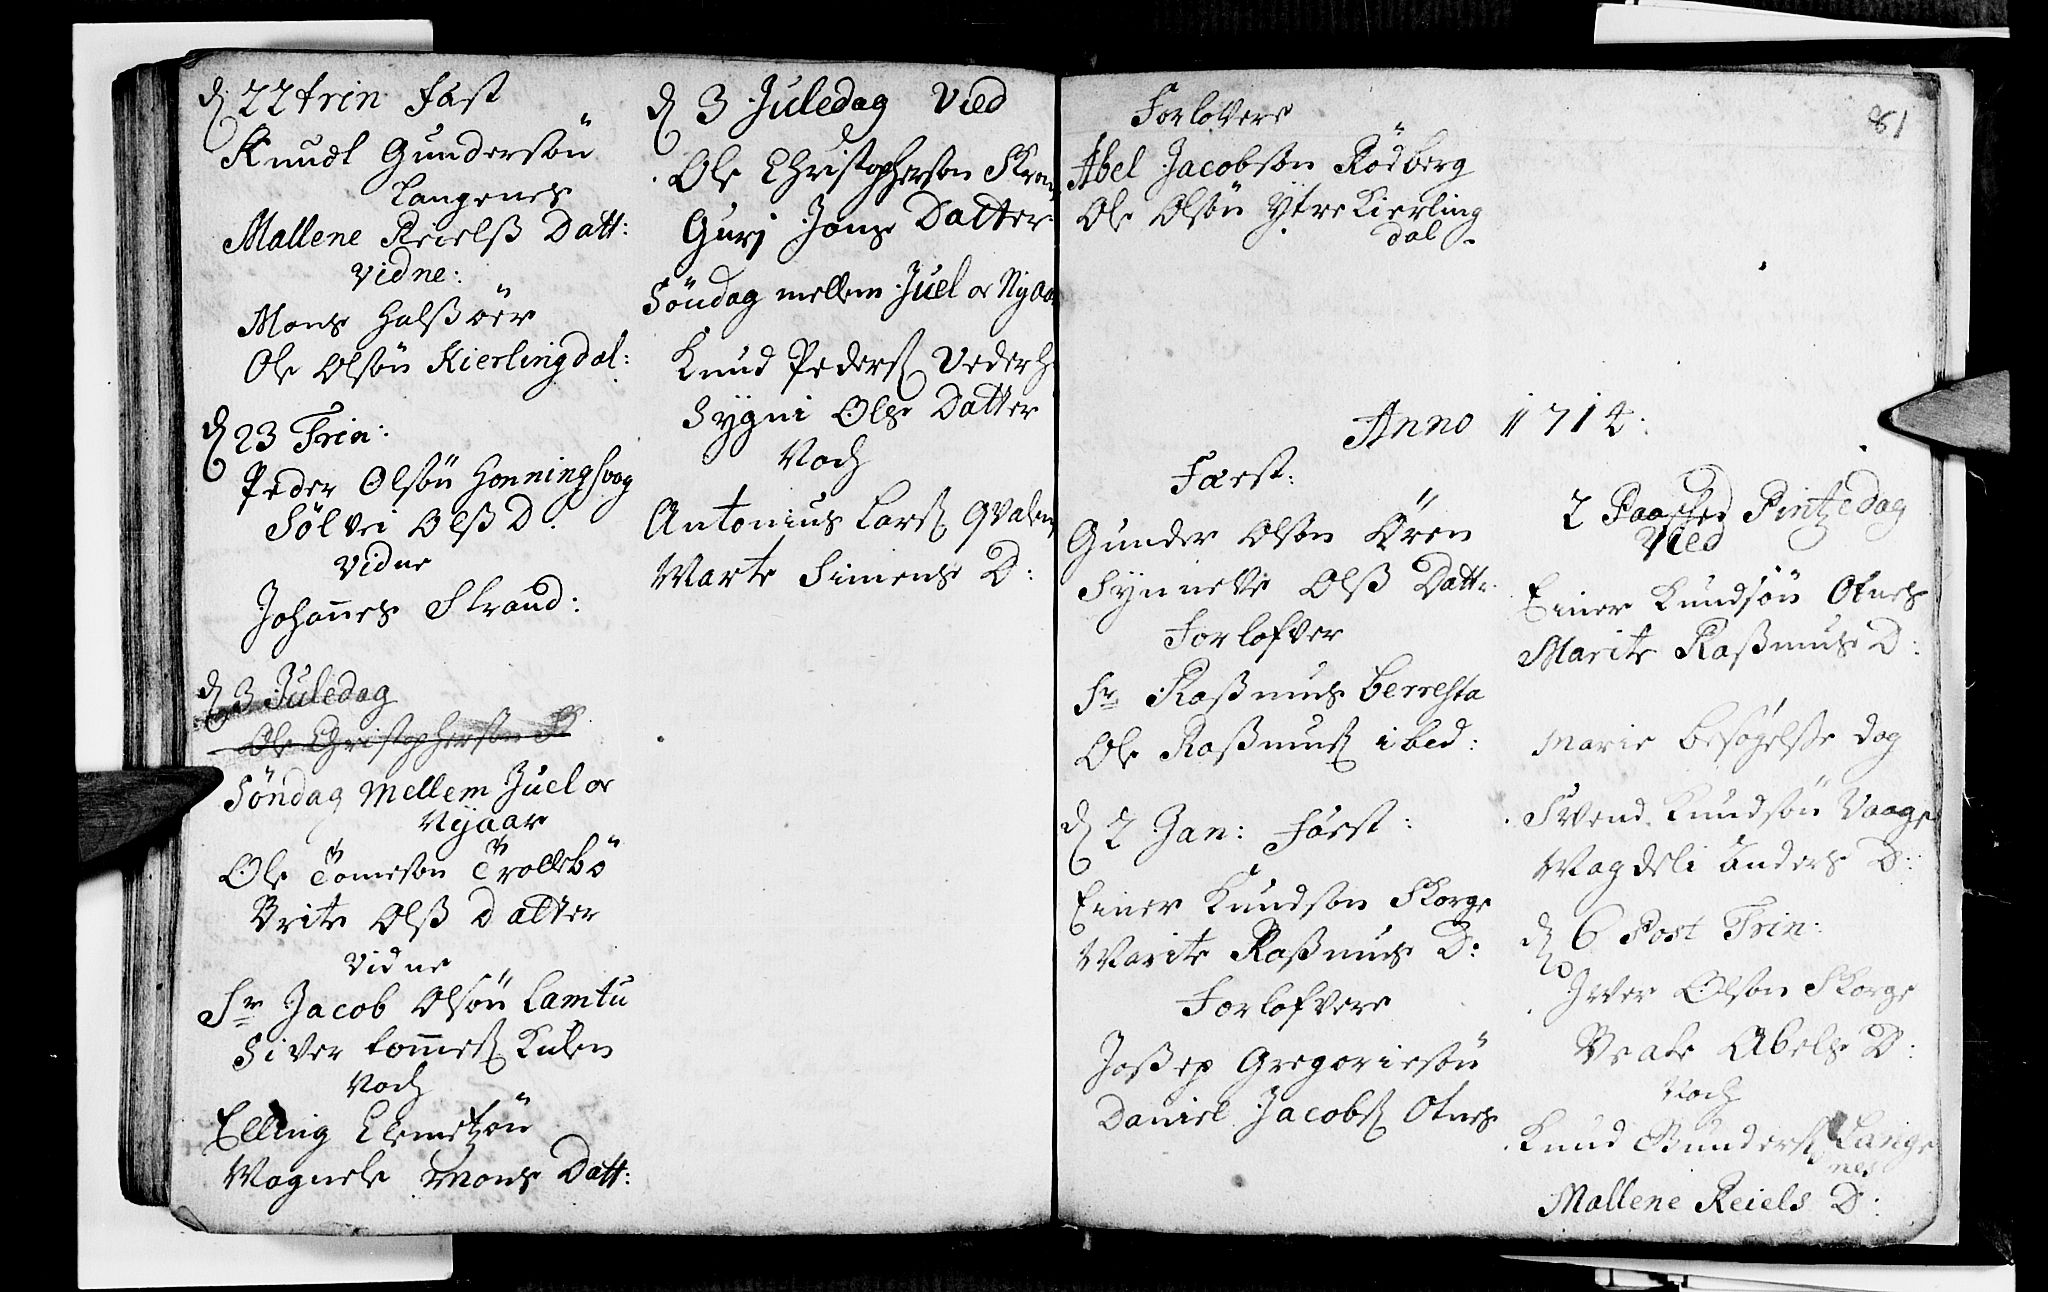 d 22 trin fæst
Knudt Gundersön
Langenes
Mallene Reielß Datt:
Vidne:
Mons Halßöer
Ole Olsön Kierlingdal:
d 23 Trin:
Peder Olsön Honningsvog
Sölvei Olß D:
Vidne
Johannes Strand:
d 3 Juledag
Ole Christophersön Sk
Söndag Mellem Juel or
Nyaar
Ole Tömesön Trollebö
Brite Olß Datter
Vidne
Sr Jacob Olsön Lamtu
Siver tommeß Kulen
Noch
Elling Clemetzön
Magnele Mons Datt:
d 3 Juledag Vied
Ole Christophersön Skram
Guri Jons Datter
Söndag mellem Juel or Nyaar
Knud Peders Vederh
Sygni Ols Datter
Noch
Antonius Lars Qvalen
Marte Simens D:
81
Forlovere
Abel Jacobsön Rödberg
Ole Olsön Ytre Kierling
dal
Anno 1714:
Fæst:
Gunder Olsön Ören
Synneve Olß Datt:
Forlofver
Sr Raßmus berresta
Ole Raßmus ibed:
d 2 Jan: Fæst:
Einer Knudsön Skorge
Marite Raßmus D:
Forlofvere
Joßep Gregoriesön
Daniel Jacobs Otnes
2 Pintzedag
Vied
Einer Knudsön Otnes
Marite Raßmus D:
Marie besögelße dag
Svend Knudsön Vaage
Magdeli Anders D:
d 6 Post Trin:
Iver Olsön Skorge
Beate Abels D:
Noch
Knud Gunders Lange
nes
Mallene Reiels D: